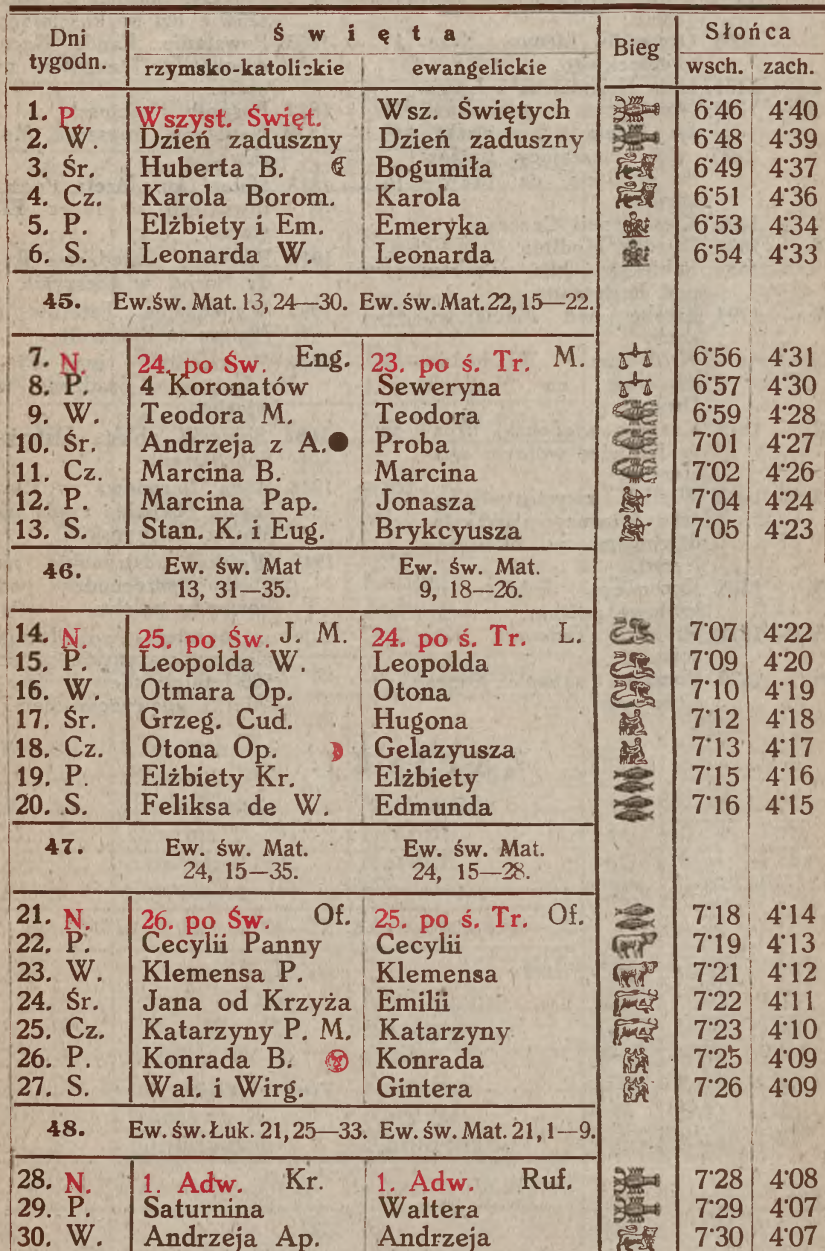 Dni tygodn. Święta Bieg Słońca
rzymsko-katolickie ewangelickie wsch. zach.
1. P. Wszyst. Święt. Wsz. Świętych 6·46 4·40
2. W. Dzień zaduszny Dzień zaduszny 6·48 4·39
3. Śr. Huberta B. Bogumiła 6·49 4·37
4. Cz. Karola Borom. Karola 6·51 4·36
5. P. Elżbiety i Em. Emeryka 6·53 4·34
6. S. Leonarda W. Leonarda 6·54 4·33
45. Ew. św. Mat. 13, 24—30. Ew. św. Mat. 22, 15—22.
7. N. 24. po Św. Eng. 23. po ś. Tr. M. 6·56 4·31
8. P. 4 Koronatów Seweryna 6·57 4·30
9. W. Teodora M. Teodora 6·59 4·28
10. Śr. Andrzeja z A. Proba 7·01 4·27
11. Cz. Marcina B. Marcina 7·02 4·26
12. P. Marcina Pap. Jonasza 7·04 4·24
13. S. Stan. K. i Eug. Brykcyusza 7·05 4·23
46. Ew. św. Mat Ew. św. Mat.
13, 31—35. 9, 18—26.
14. N. 25. po Św. J. M. 24. po ś. Tr. L. 7·07 4·22
15. P. Leopolda W. Leopolda 7·09 4·20
16. W. Otmara Op. Otona 7·10 4·19
17. Śr. Grzeg. Cud. Hugona 7·12 4·18
18. Cz. Otona Op. Gelazyusza 7·13 4·17
19. P. Elżbiety Kr. Elżbiety 7·15 4·16
20. S. Feliksa de W. Edmunda 7·16 4·15
47. Ew. św. Mat. Ew. św. Mat.
24, 15—35. 24, 15—28.
21. N. 26. po Św. Of. 25. po ś. Tr. Of. 7·18 4·14
22. P. Cecylii Panny Cecylii 7·19 4·13
23. W. Klemensa P. Klemensa 7·21 4·12
24. Śr. Jana od Krzyża Emilii 7·22 4·11
25. Cz. Katarzyny P. M. Katarzyny 7·23 4·10
26. P. Konrada B. Konrada 7·25 4·09
27. S. Wal. i Wirg. Gintera 7·26 4·09
48. Ew. św. Łuk. 21, 25—33. Ew. św. Mat. 21, 1—9.
28. N. 1. Adw. Kr. 1. Adw. Ruf. 7·28 4·08
29. P. Saturnina Waltera 7·29 4·07
30. W. Andrzeja Ap. Andrzeja 7·30 4·07